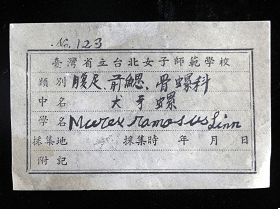 No. 123
臺灣省立台北女子師範學校
類別 腹足、前鰓、骨螺科
中名 大千手螺
學名 Murex ramosus Linn
採集地 採集時 年 月 日
附記